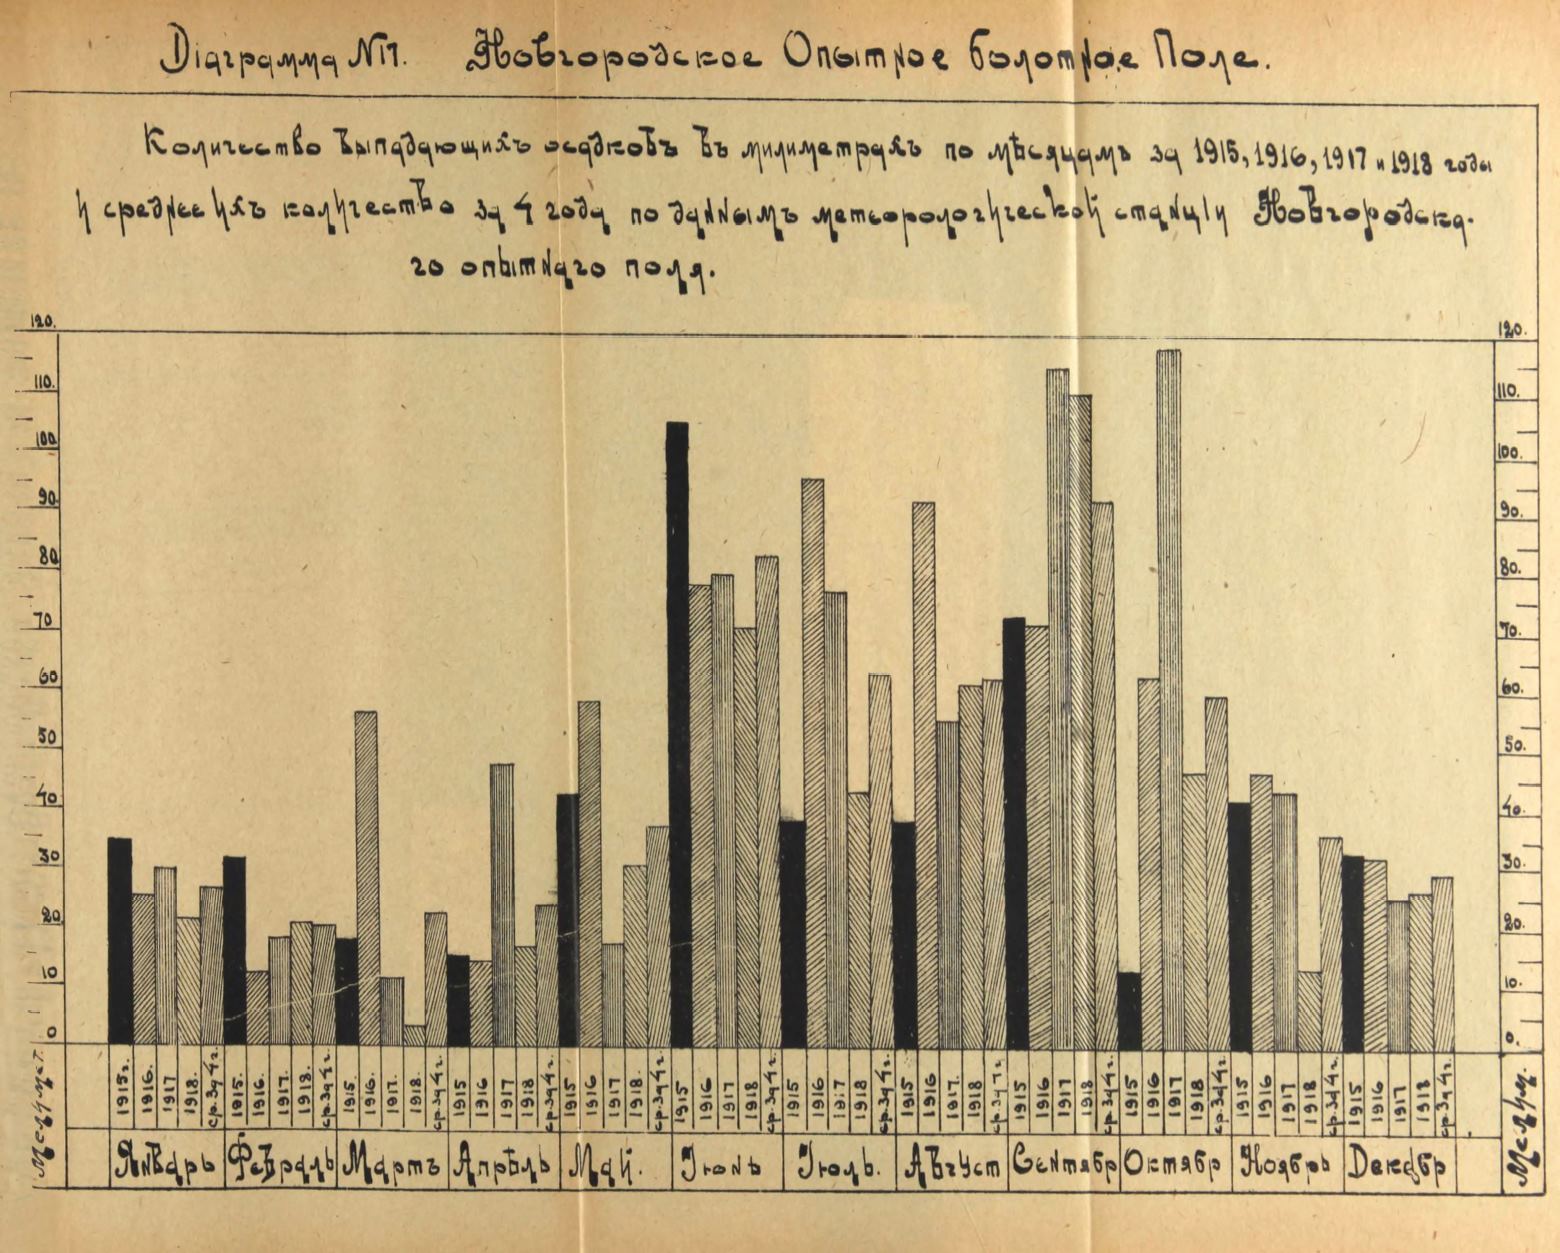 Діаграмма №17. Новгородское Опытное болотное Поле.
Количество выпадающихъ осадковъ въ милиметрахъ по мѣсяцамъ за 1915, 1916, 1917 и 1918 годы
и среднее ихъ количество за 4 года по даннымъ метеорологической станціи Новгородска-
го опытнаго поля.
120. 120.
110. 110.
100. 100.
90. 90.
80 80.
70 70.
60 60.
50 50.
40 40.
30 30.
20 20.
10 10.
0 0.
1915г. 1916. 1917 1918. ср. за 4 г. 1915. 1916. 1917. 1918. ср. за 4 г. 1915. 1916. 1917. 1918. ср. за 4 г. 1915 1916 1917 1918 ср. за 4 г. 1915 1916 1917 1918. ср. за 4 г. 1915 1916 1917 1918 ср. за 4 г. 1915 1916 1917 1918 ср. за 4 г. 1915 1916 1917. 1918 ср. за 4 г. 1915 1916 1917 1918 ср. за 4 г. 1915 1916 1917 1918 ср. за 4 г. 1915 1916 1917 1918 ср. за 4 г. 1915 1916 1917 1918 ср. за 4 г.
Январь Февраль Мартъ Апрѣль Май. Іюнь Іюль. Август Сентябр Октябр Ноябрь Декабр